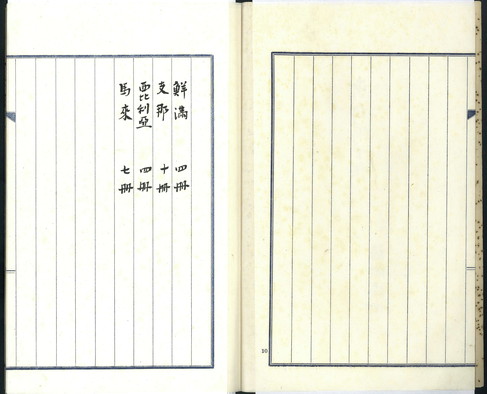 鮮滿 四冊
支那 十冊
西比利亞 四冊
馬來 七冊
10